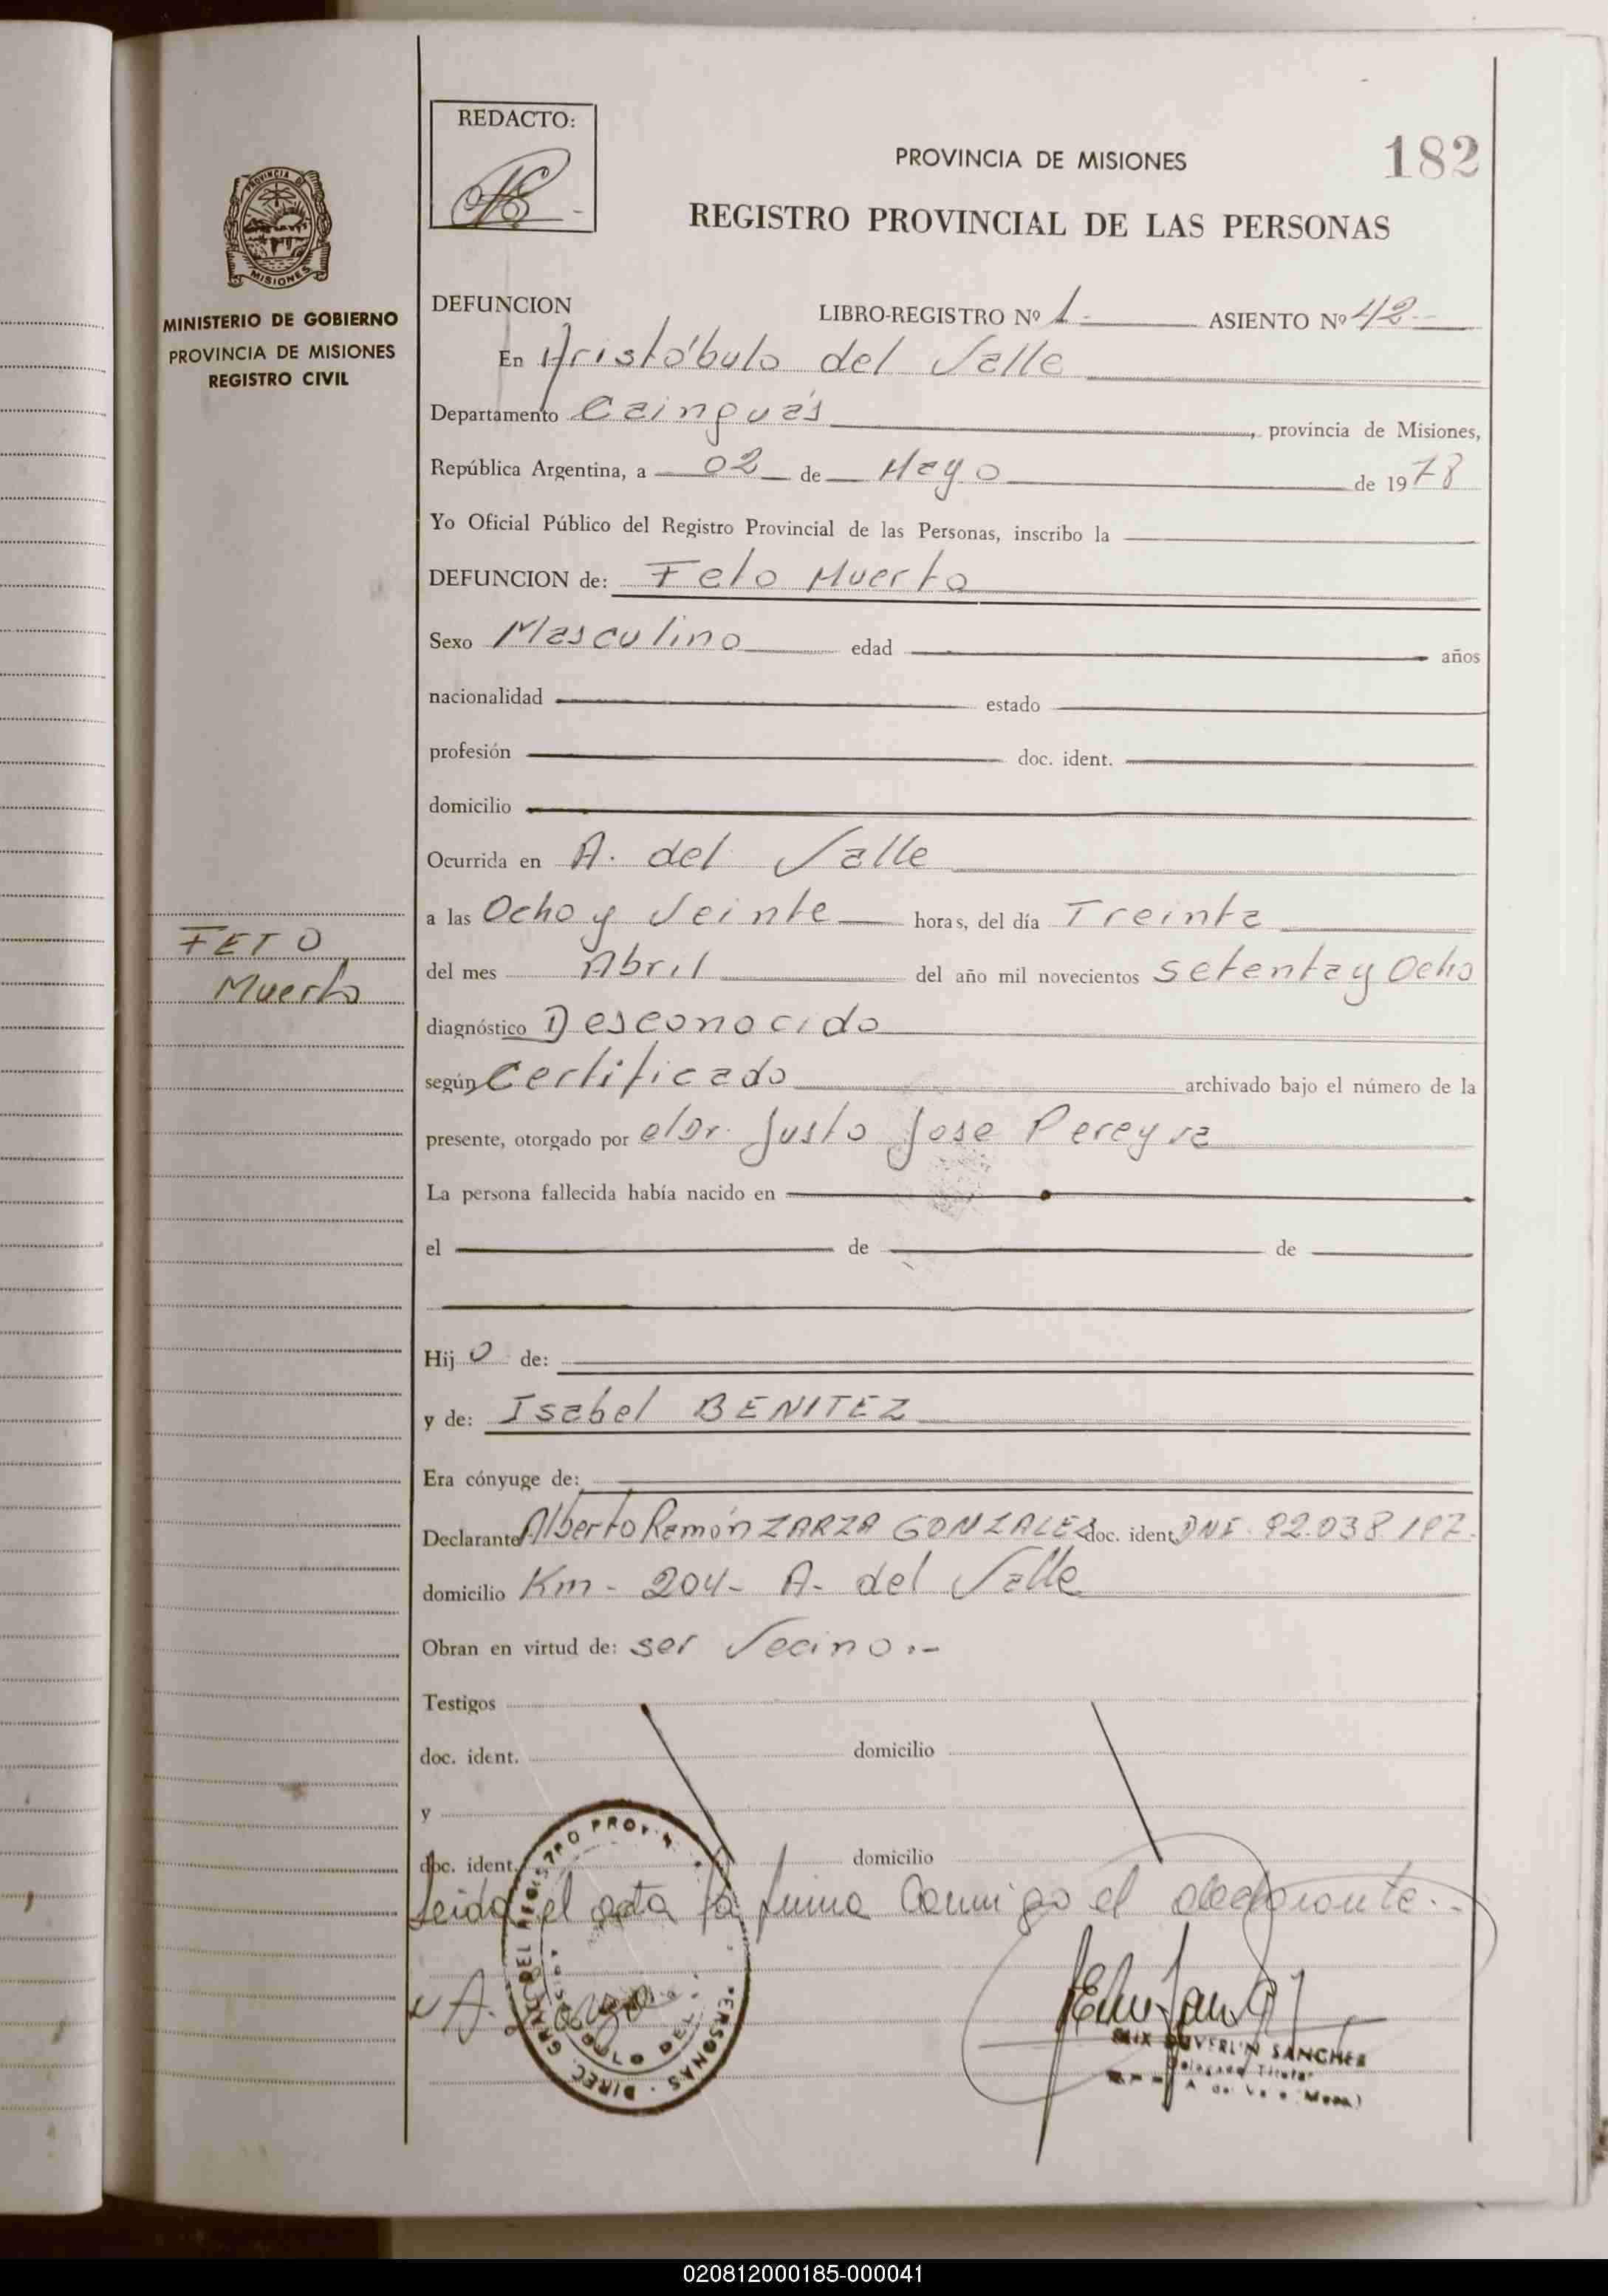 REDACTO:
PROVINCIA DE MISIONES
182
REGISTRO PROVINCIAL DE LAS PERSONAS
PROVINCIA DE
MISIONES
MINISTERIO DE GOBIERNO
PROVINCIA DE MISIONES
REGISTRO CIVIL
DEFUNCION LIBRO-REGISTRO Nº 1- ASIENTO Nº 42-
En Aristóbulo del Valle
Departamento Cainguás, provincia de Misiones,
República Argentina, a 02 de Mayo de 1978
Yo Oficial Público del Registro Provincial de las Personas, inscribo la
DEFUNCION de: Feto Muerto
Sexo Masculino edad años
nacionalidad estado
profesión doc. ident.
domicilio
Ocurrida en A. del Valle
a las Ocho y Veinte horas, del día Treinta
del mes Abril del año mil novecientos setenta y Ocho
FETO
Muerto
diagnóstico Desconocido
según Certificado archivado bajo el número de la
presente, otorgado por el Dr. Justo Jose Pereyra
La persona fallecida había nacido en
el de de
Hij o de:
y de: Isabel BENITEZ
Era cónyuge de:
Declarante Alberto Ramón ZARZA GONZALEZ doc. ident. DNI. 92.038.197.
domicilio Km- 204- A- del Valle
Obran en virtud de: ser Vecino.-
Testigos
doc. ident. domicilio
y
doc. ident. domicilio
Leida el acta la firma conmigo el declarante.-
DUVERLIN SANCHEZ
Delegado Titular
020812000185-000041